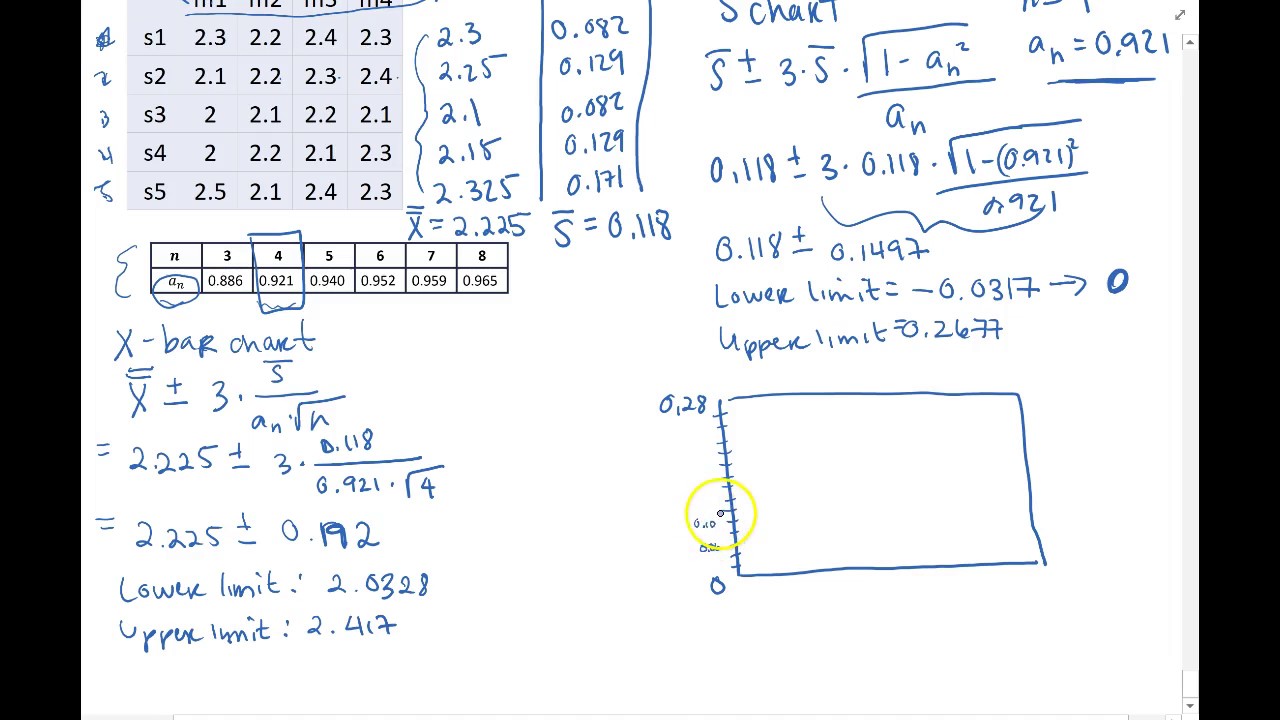 m1 m2 m3 m4
s1 2.3 2.2 2.4 2.3 2.3 0.082
2 s2 2.1 2.2 2.3 2.4 2.25 0.129
3 s3 2 2.1 2.2 2.1 2.1 0.082
4 s4 2 2.2 2.1 2.3 2.15 0.129
5 s5 2.5 2.1 2.4 2.3 2.325 0.171
X̿ = 2.225 S̄ = 0.118
n 3 4 5 6 7 8
aₙ 0.886 0.921 0.940 0.952 0.959 0.965
X-bar chart
X̿ ± 3 · S̄ / aₙ·√n
= 2.225 ± 3 · 0.118 / 0.921 · √4
= 2.225 ± 0.192
Lower limit: 2.0328
Upper limit: 2.417
S chart
aₙ = 0.921
S̄ ± 3 · S̄ · √1 - aₙ² / aₙ
0.118 ± 3 · 0.118 · √1-(0.921)² / 0.921
0.118 ± 0.1497
Lower limit = -0.0317 → 0
Upper limit = 0.2677
0.28
0.10
0